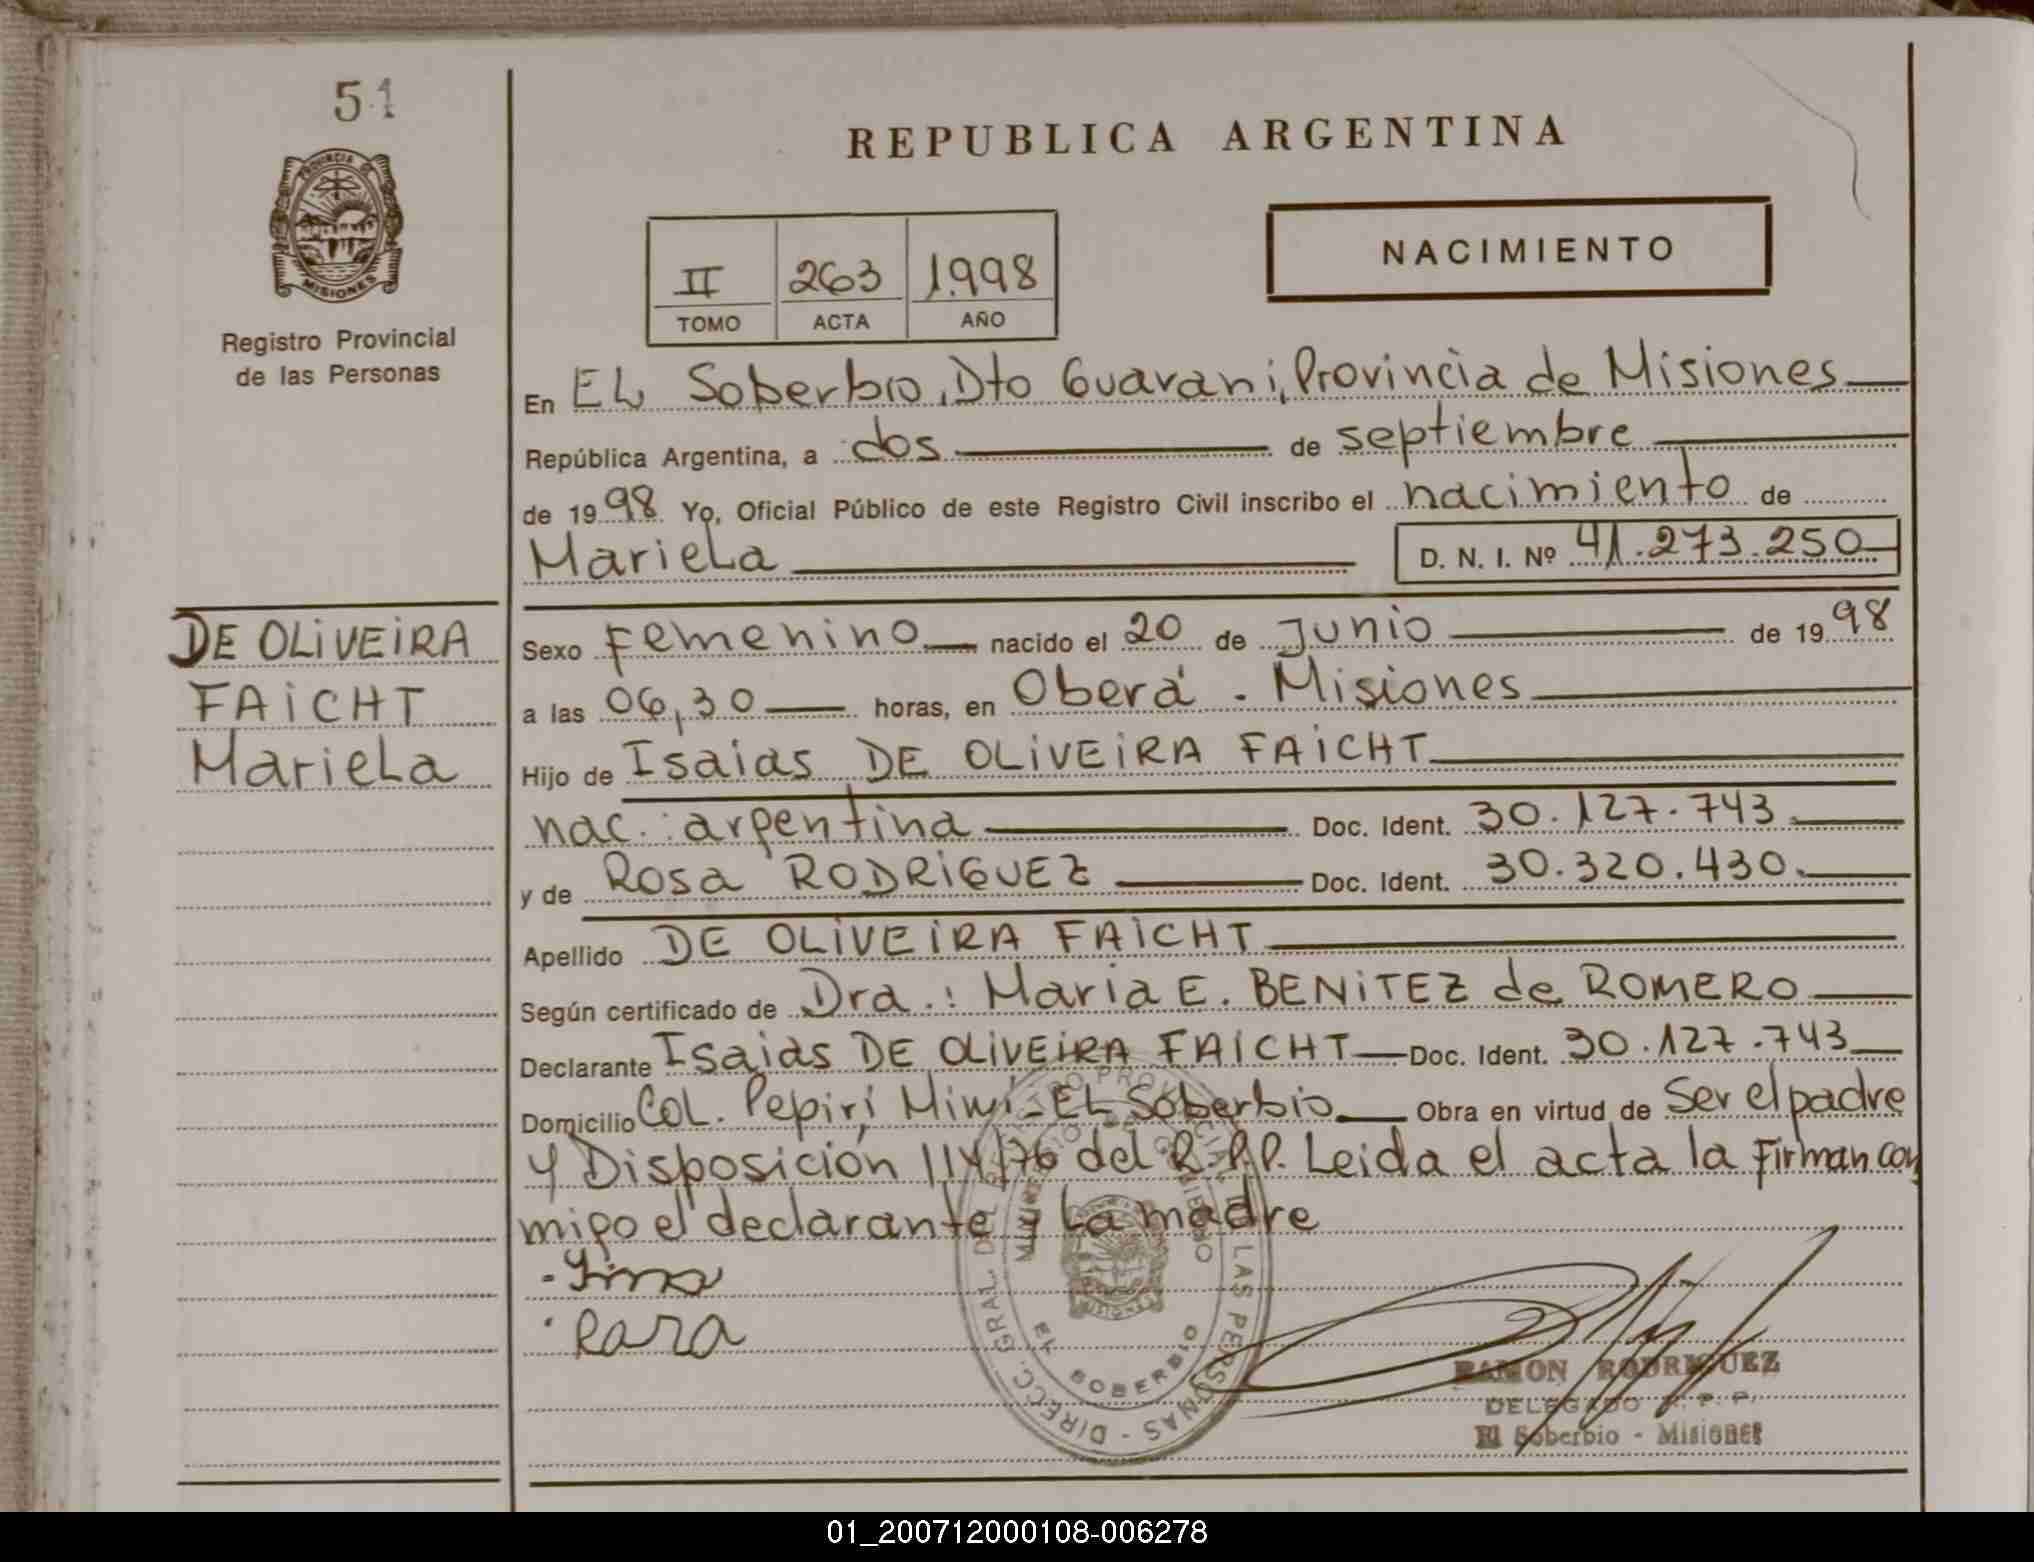 51
REPUBLICA ARGENTINA
PROVINCIA DE
MISIONES
Registro Provincial
de las Personas
NACIMIENTO
II 263 1.998
TOMO ACTA AÑO
En EL Soberbio, Dto Guarani, Provincia de Misiones
República Argentina, a dos de septiembre
de 1998 Yo, Oficial Público de este Registro Civil inscribo el nacimiento de
Mariela D. N. I. Nº 41.273.250
DE OLIVEIRA
FAICHT
Mariela
Sexo Femenino nacido el 20 de Junio de 1998
a las 06,30 horas, en Oberá - Misiones
Hijo de Isaias DE OLIVEIRA FAICHT
nac. argentina Doc. Ident. 30.127.743
y de Rosa RODRIGUEZ Doc. Ident. 30.320.430
Apellido DE OLIVEIRA FAICHT
Según certificado de Dra.: Maria E. BENITEZ de ROMERO
Declarante Isaias DE OLIVEIRA FAICHT Doc. Ident. 30.127.743
Domicilio Col. Pepirí Miní - EL Soberbio Obra en virtud de Ser el padre
y Disposición 114/76 del R.P.P. Leida el acta la Firman con
migo el declarante y La madre
DIRECC. GRAL. DEL REGISTRO PROVINCIAL DE LAS PERSONAS
MINISTERIO DE GOBIERNO
MISIONES
EL SOBERBIO
RAMON RODRIGUEZ
DELEGADO R. P. P.
El Soberbio - Misiones
01_200712000108-006278